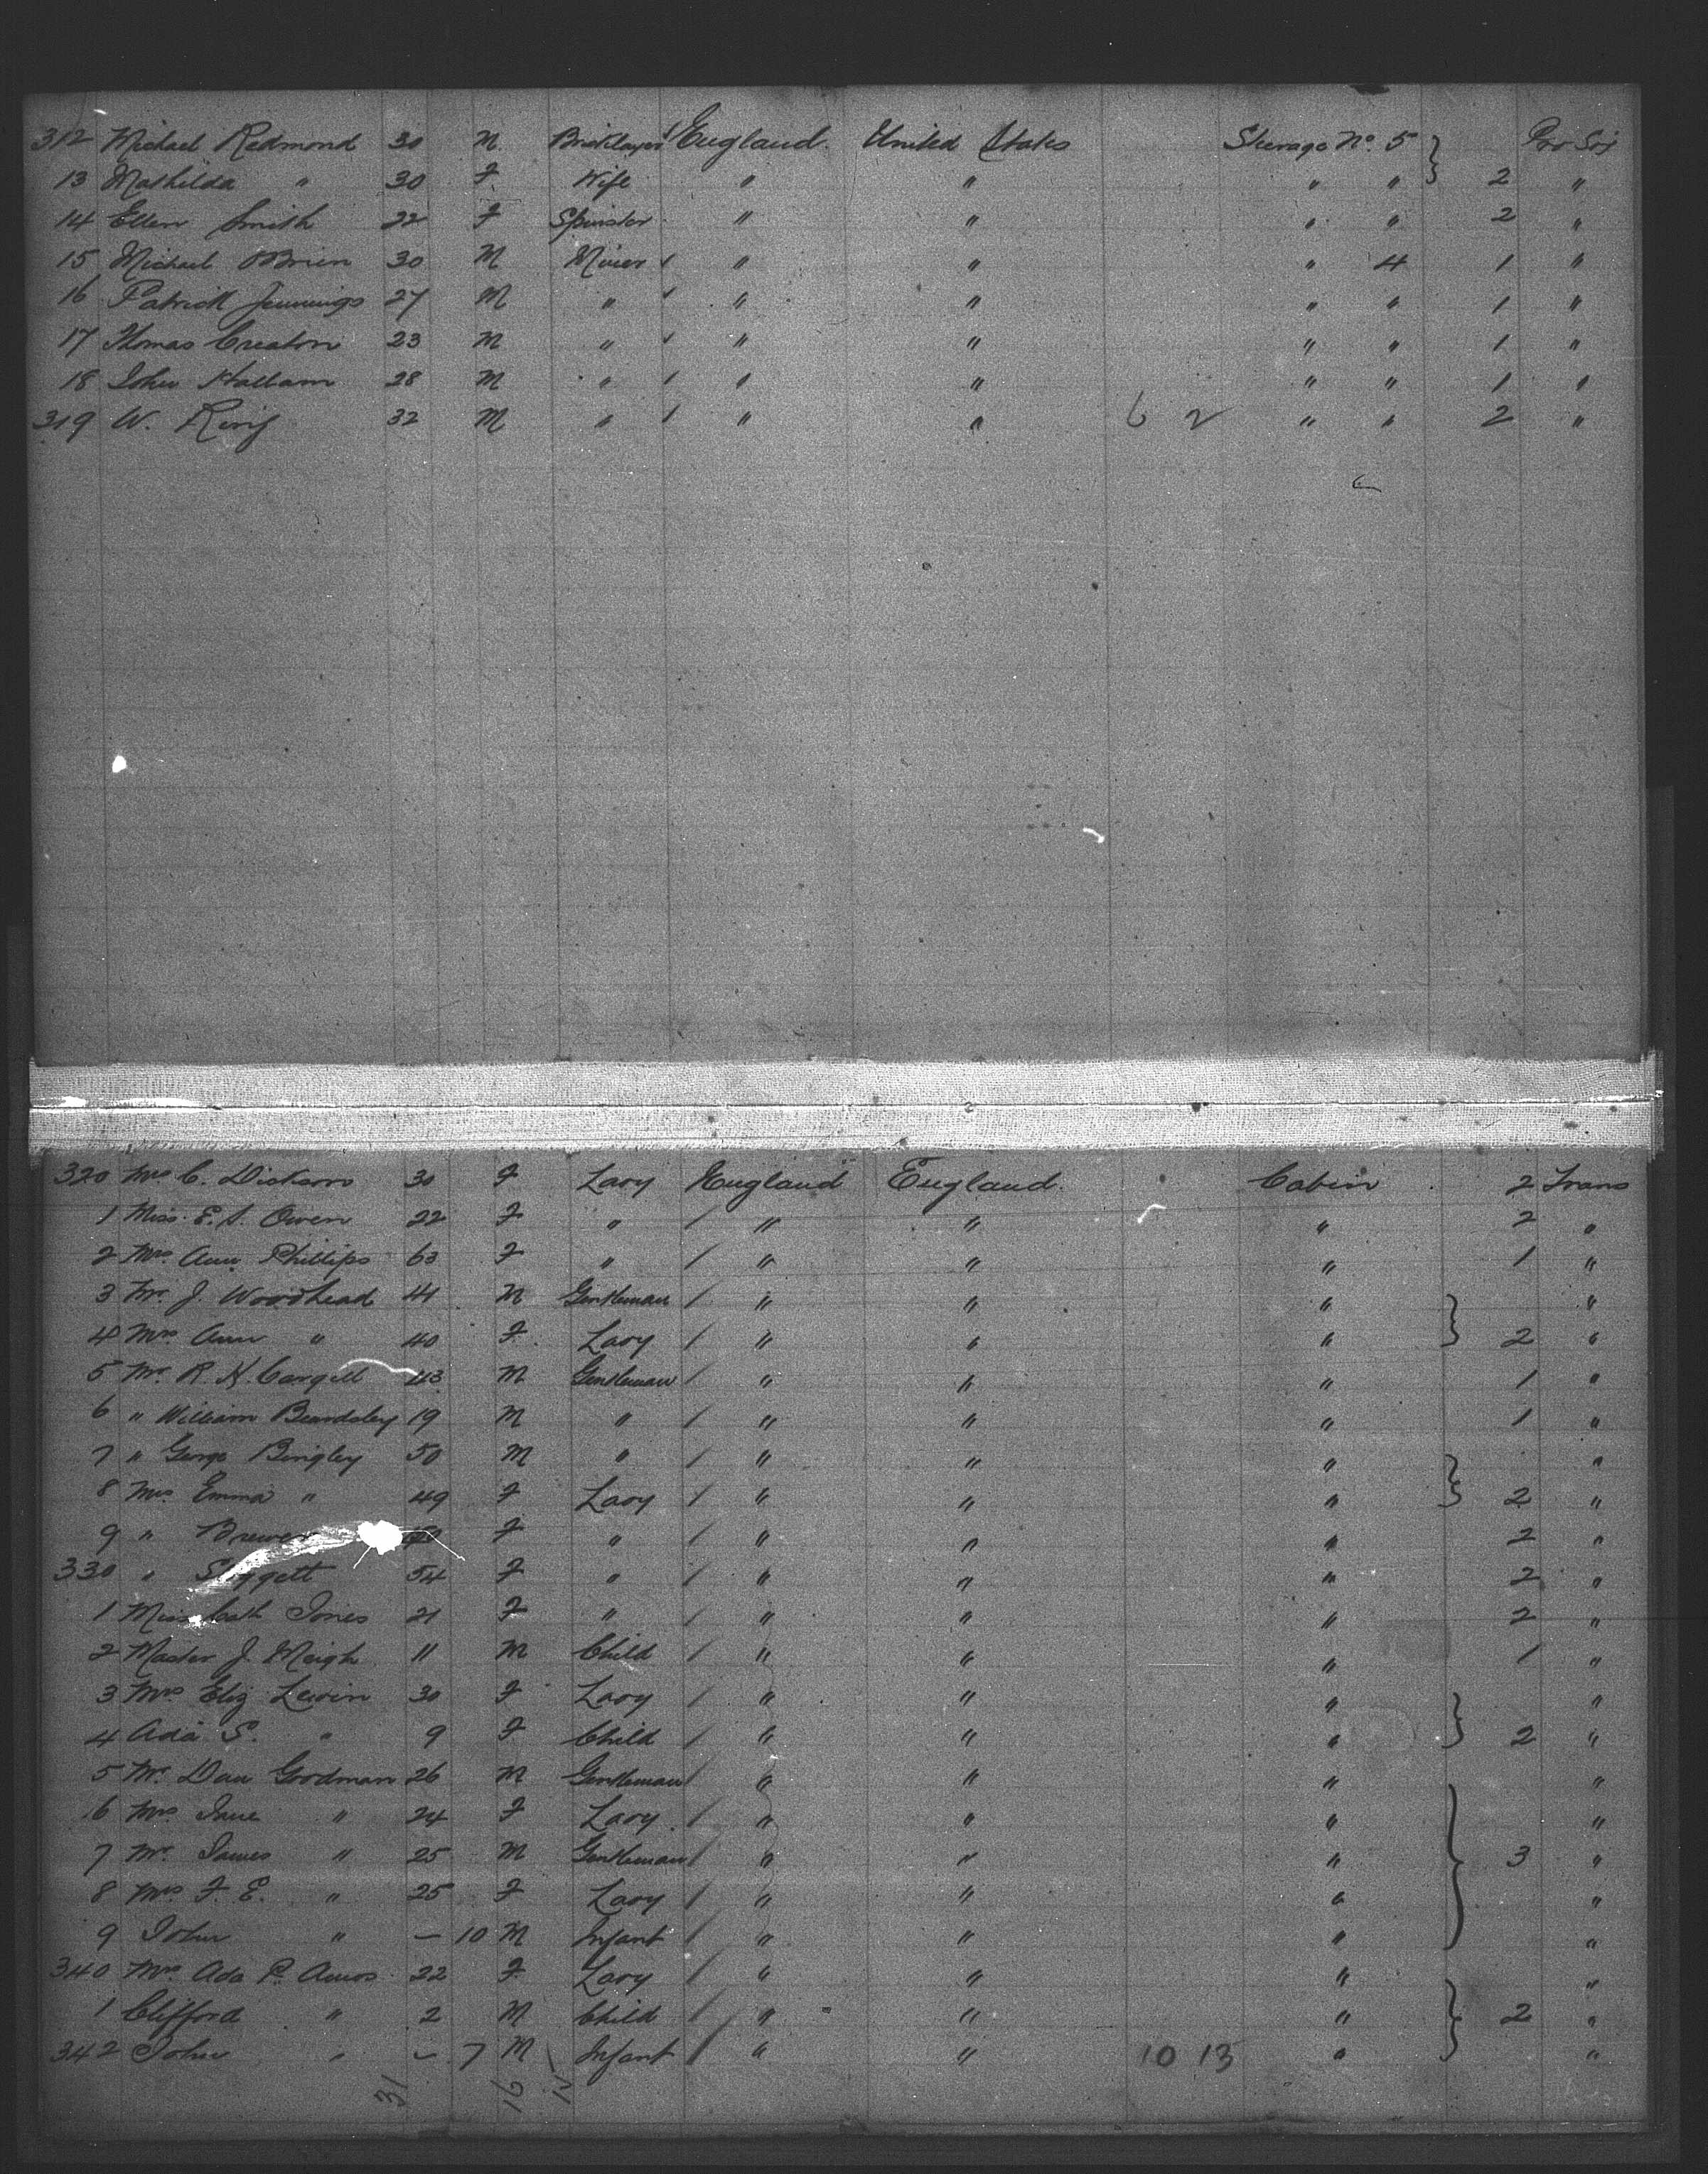 312 Michael Redmond 30 M. Bricklayer England. United States Steerage No. 5 Pro Soj
13 Mathilda " 30 F. Wife " " " " 2 "
14 Ellen Smith 22 F Spinster " " " " 2 "
15 Michael OBrien 30 M Miner " " " 4 1 "
16 Patrick Jennings 27 M " " " " " 1 "
17 Thomas Creaton 23 M " " " " " 1 "
18 John Hallam 28 M " " " " " 1 "
319 W. King 32 M " " " 6 2 " " 2 "
320 Mrs C. Dickson 30 F Lady England England. Cabin 2 Trans
1 Miss. E. S. Owen 22 F " " " " 2 "
2 Mrs. Ann Phillips 63 F " " " " 1 "
3 Mr. J. Woodhead 41 M Gentleman " " " "
4 Mrs Ann " 40 F. Lady " " " 2 "
5 Mr. R. H. Cargill 43 M Gentleman " " " 1 "
6 " William Beardsley 19 M " " " " 1 "
7 " George Bingley 50 M " " " " "
8 Mrs. Emma " 49 F Lady " " " 2 "
9 " Brewer F " " " " 2 "
330 " 54 F " " " " 2 "
1 Miss Cath Jones 21 F " " " " 2 "
2 Master J. Meigh 11 M Child " " " 1 "
3 Mrs. Eliz Lewin 30 F Lady " " " "
4 Ada S. " 9 F Child " " " 2 "
5 Mr. Dan Goodman 26 M Gentleman " " " "
6 Mrs Jane " 24 F Lady. " " " "
7 Mr. James " 25 M Gentleman " " " 3 "
8 Mrs F. E. " 25 F Lady " " " "
9 John " – 10 M Infant " " " "
340 Mrs. Ada P. Amos 22 F Lady " " " "
1 Clifford " 2 M Child " " " 2 "
342 John " – 7 M Infant " " 10 13 " "
31 16 15